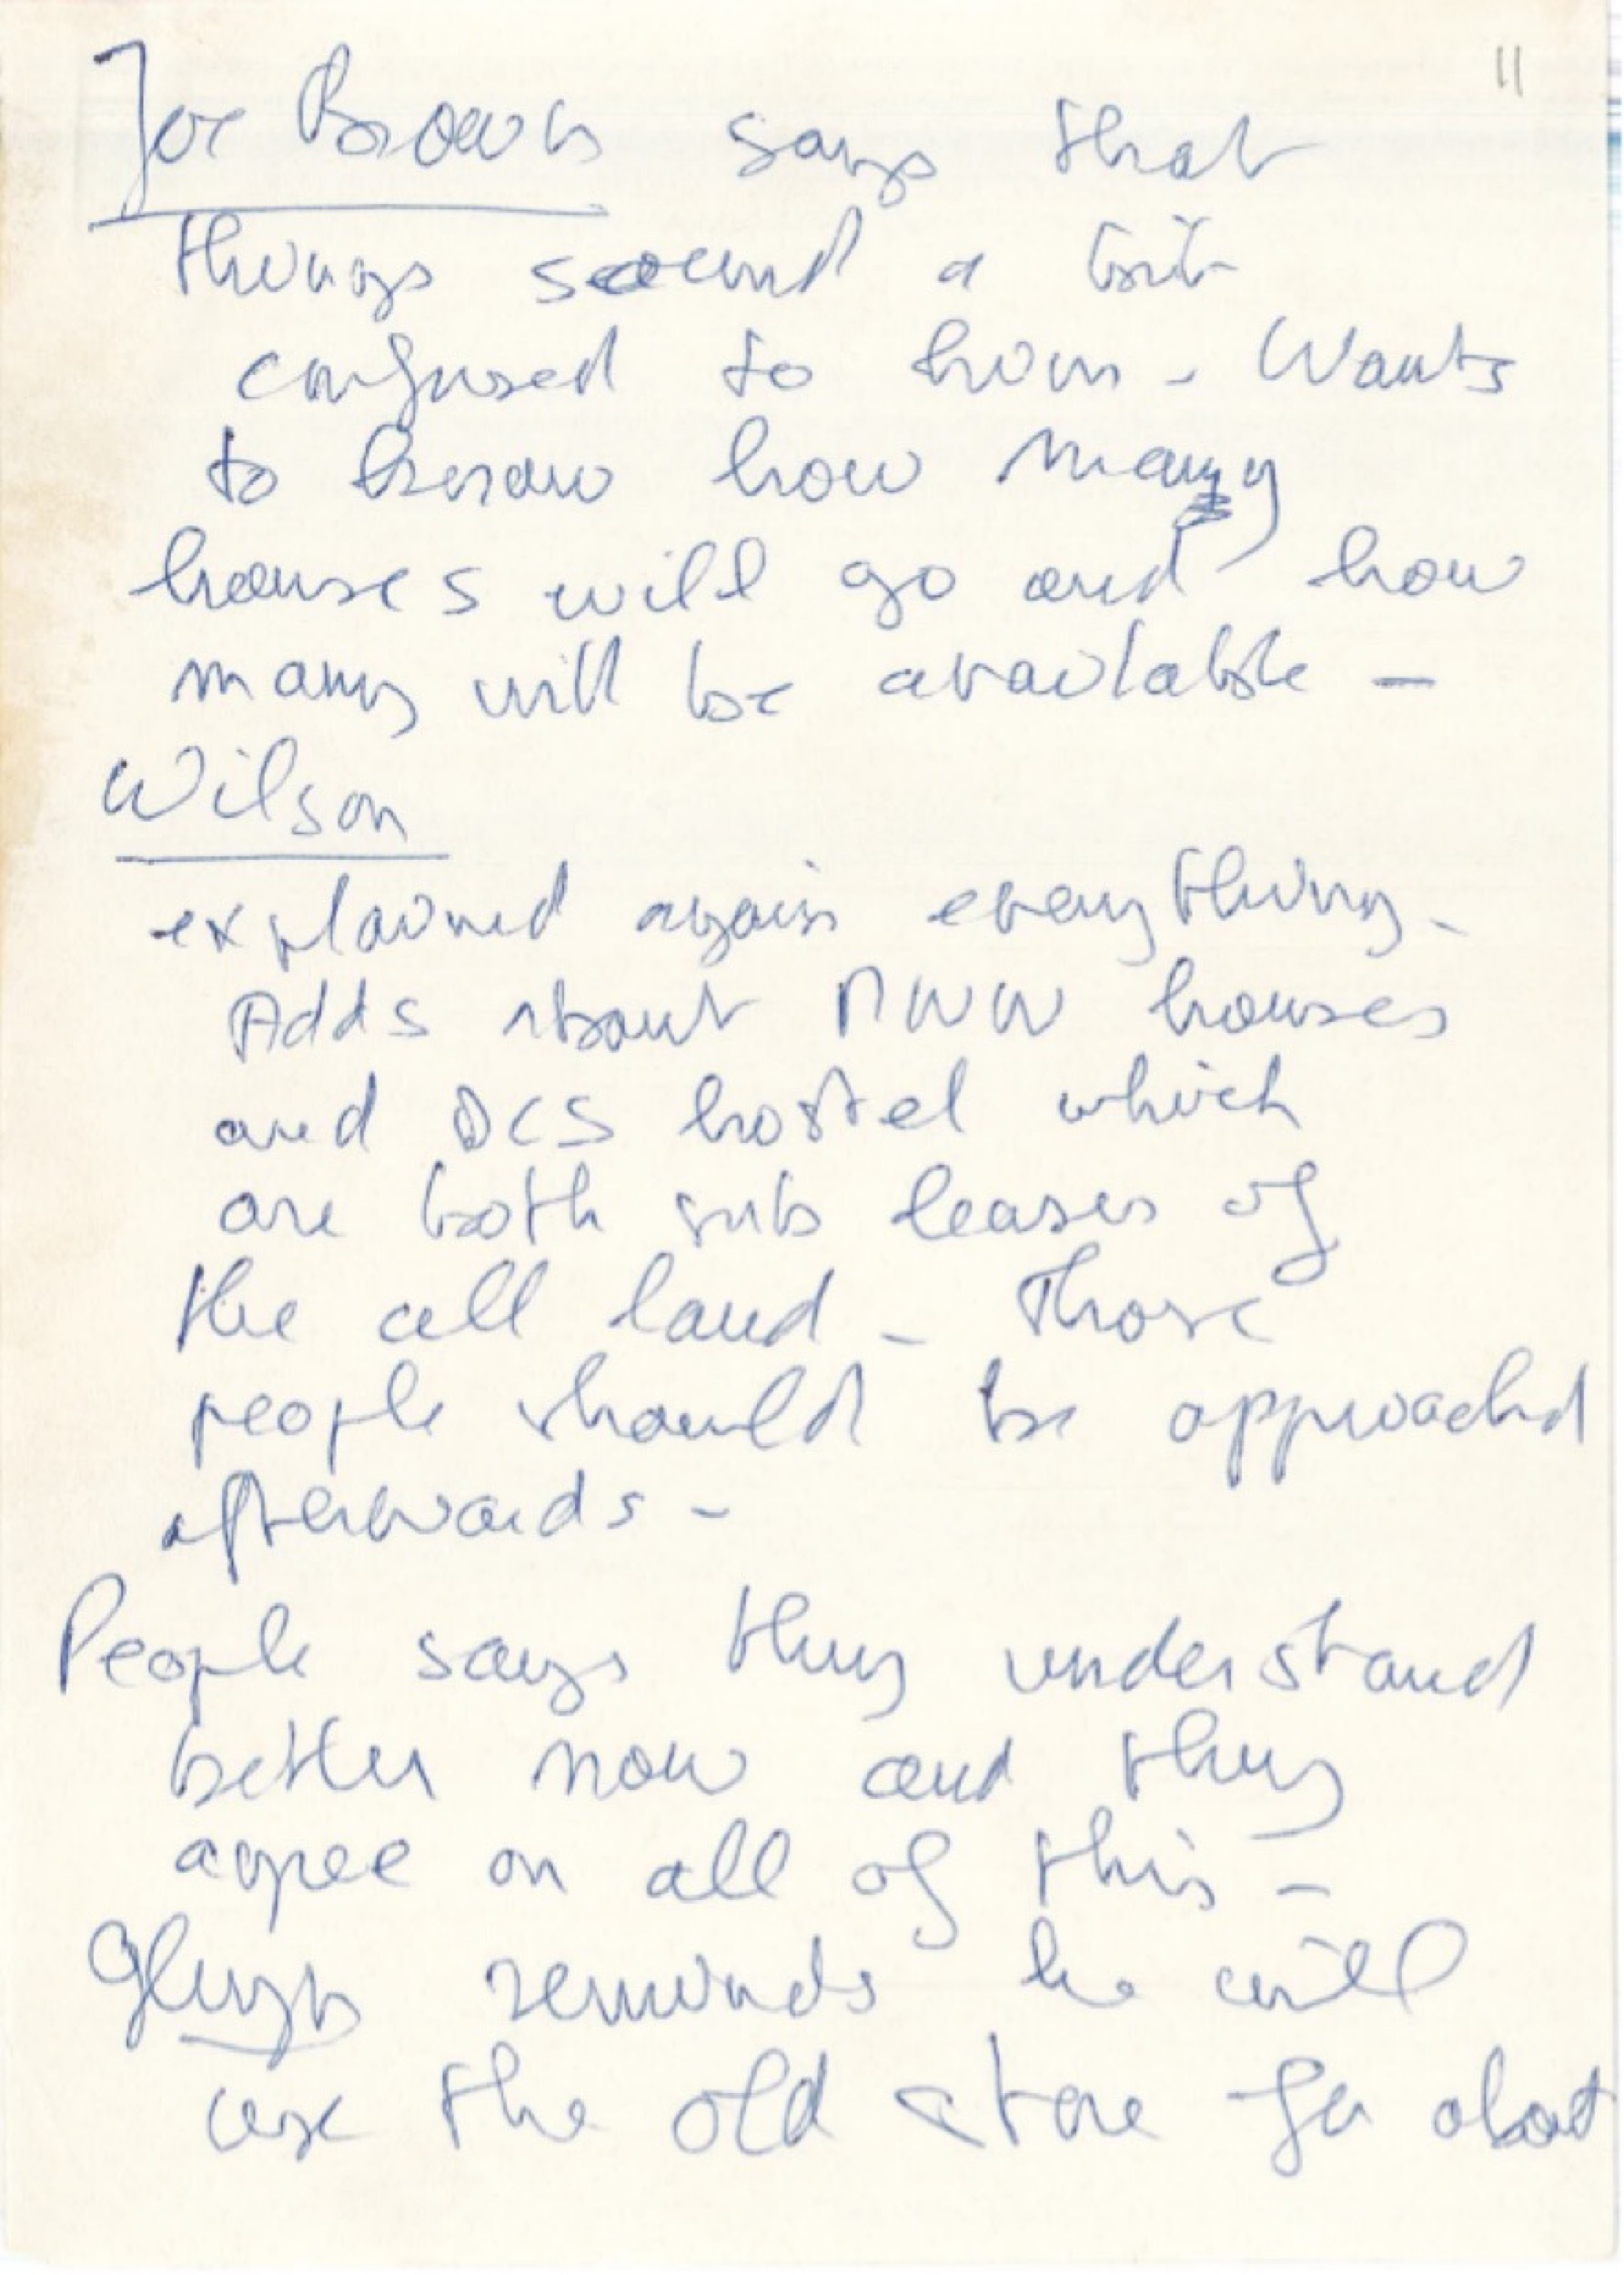 11
Joe Brown says that
things sound a bit
confused to him - Wants
to know how many
houses will go and how
many will be available -
Wilson
explained again everything -
Adds about PWW houses
and DCS hostel which
are both sub leases of
the all land - Those
people should be approached
afterwards -
People says they understand
better now and they
agree on all of this -
Glynn reminds he will
use the old store for about